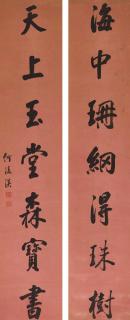 海中珊網得珠樹
天上玉堂森寶書
何淩漢